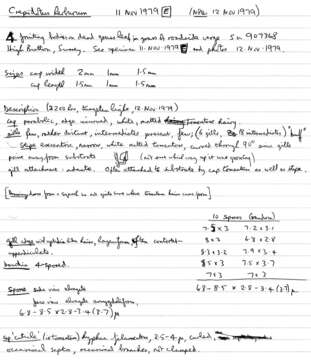 Crepidotus 11 NOV 1979 E (NPL 12 NOV 1979)
4 fruiting between dead grass leaf in grass at roadside verge. SU 907368
High Button, Surrey. See specimen 11.NOV.1979 E and photos 12.NOV.1979.
Sizes cap width 2mm 1mm 1.5mm
cap length 1.5mm 1mm 1.5mm
Description (2202 hrs, tungsten light, 12 Nov 1979)
cap parabolic, edge incurved, white, matted tomentose hairy.
gills few, rather distant, intermediates present, few; (6 gills, 8 intermediates) "buff"
stipe excentric, narrow, white matted tomentum, curved through 90° since gills
were away from substrate (not sure which way up it was growing)
gill attachment: adnate. Often attached to substrate by cap tomentum as well as stipe.
10 spores (random)
7.5 x 3 7.2 x 3.1
8 x 3 6.8 x 2.8
8.3 x 3.2 7.9 x 3.4
8.5 x 3 7.5 x 3.7
7 x 3 7 x 3
6.8 - 8.5 x 2.8 - 3.4 (3.7) µ
gill edge with cystidia like hairs, lageniform often contorted
appendiculate.
basidia 4-spored.
Spores side view elongate
face view elongate amygdaliform,
6.8 - 8.5 x 2.8 - 3.4 (3.7) µ
cap 'cuticle' (ornamentation) hyphae filamentous, 2.5-4 µ, coiled,
occasional septa, occasional branches, not clamped.